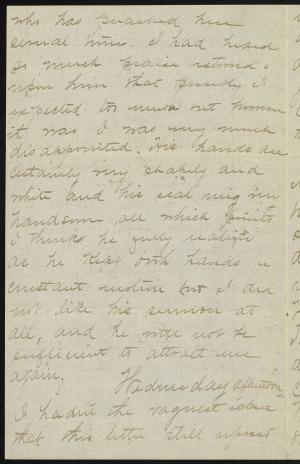 who has preached here
several times. I had heard
so much praise
upon him that possibly I
expected too much but however
it was I was very much
disappointed. His hands are
certainly very shapely and
white and his seal ring very
handsome, all which points
I think he fully realizes
as he kept both hands in
constant motion but I did
not like his sermon at
all, and he will not be
sufficient to attract me
again.
Wednesday afternoon
I hadn't the vaguest idea
that this letter still